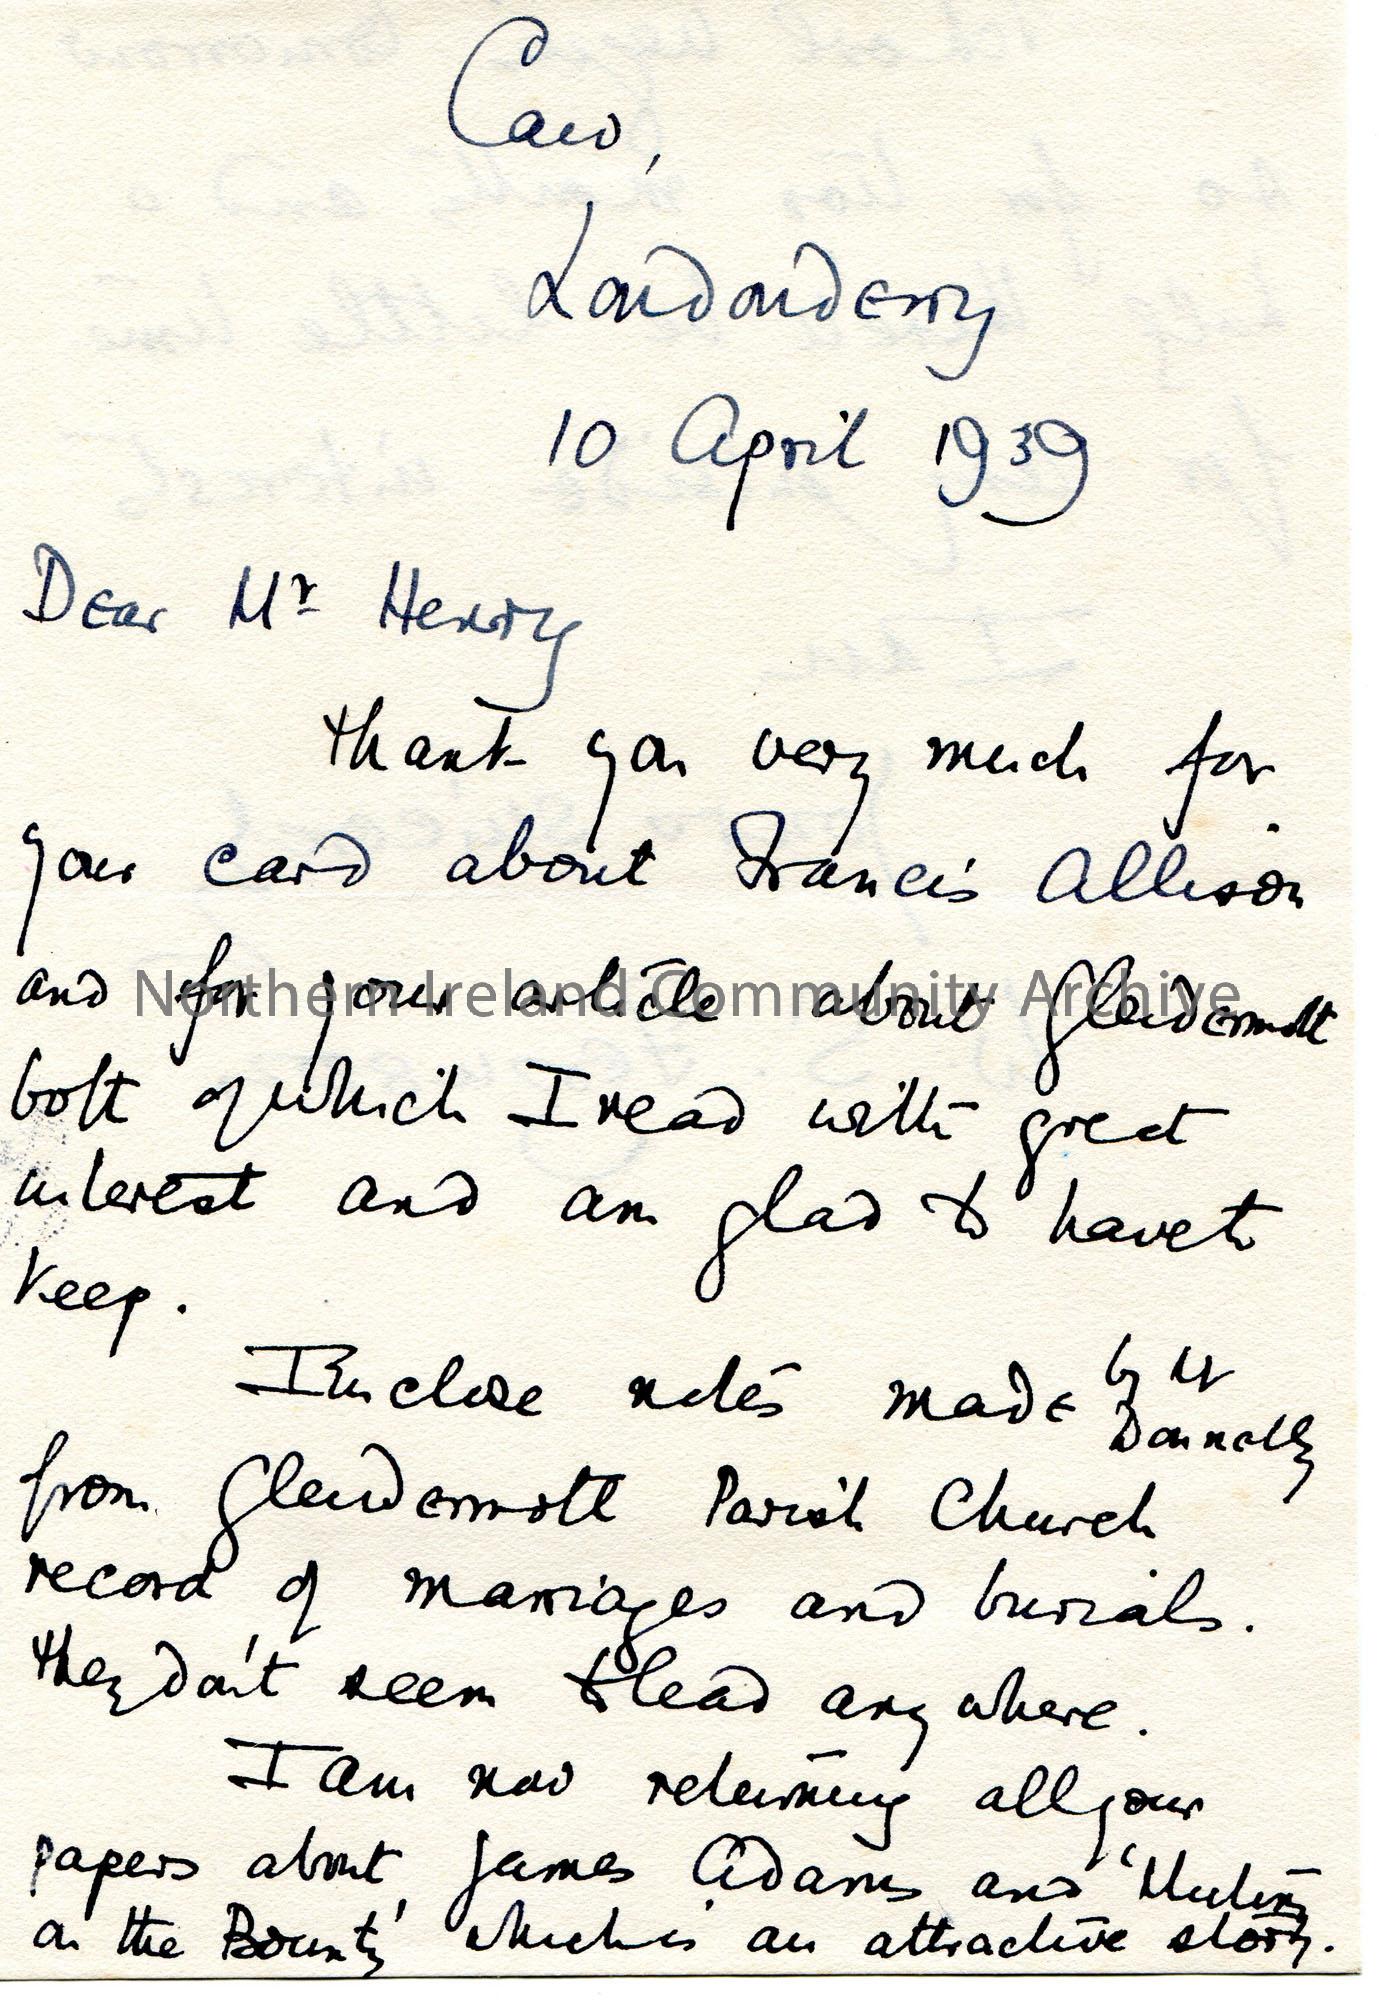 Caw,
Londonderry
10 April 1939
Dear Mr Henry
Thank you very much for
your card about Francis Allison
and for your article about Glendermott
both of which I read with great
interest and am glad to have to
keep.
I enclose notes made by Mr Donnelly
from Glendermott Parish Church
record of marriages and burials.
They don't seem to lead anywhere.
I am now returning all your
papers about James Adams and 'Mutiny
on the Bounty' which is an attractive story.
Northern Ireland Community Archive